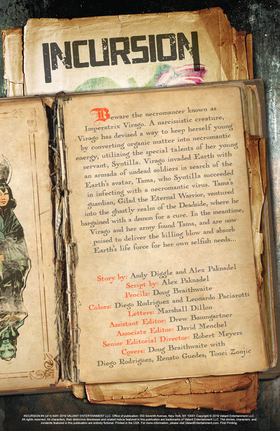 INCURSION
Beware the necromancer known as
Imperatrix Virago. A narcissistic creature,
Virago has devised a way to keep herself young
by converting organic matter into necromantic
energy, utilizing the special talents of her young
servant, Syntilla. Virago invaded Earth with
an armada of undead soldiers in search of the
Earth's avatar, Tama, who Syntilla succeeded
in infecting with a necromantic virus. Tama's
guardian, Gilad the Eternal Warrior, ventured
into the ghostly realm of the Deadside, where he
bargained with a demon for a cure. In the meantime,
Virago and her army found Tama, and are now
poised to deliver the killing blow and absorb
Earth's life force for her own selfish needs...
Story by: Andy Diggle and Alex Paknadel
Script by: Alex Paknadel
Pencils: Doug Braithwaite
Colors: Diego Rodriguez and Leonardo Paciarotti
Letters: Marshall Dillon
Assistant Editor: Drew Baumgartner
Associate Editor: David Menchel
Senior Editorial Director: Robert Meyers
Covers: Doug Braithwaite with
Diego Rodriguez, Renato Guedes, Tonci Zonjic